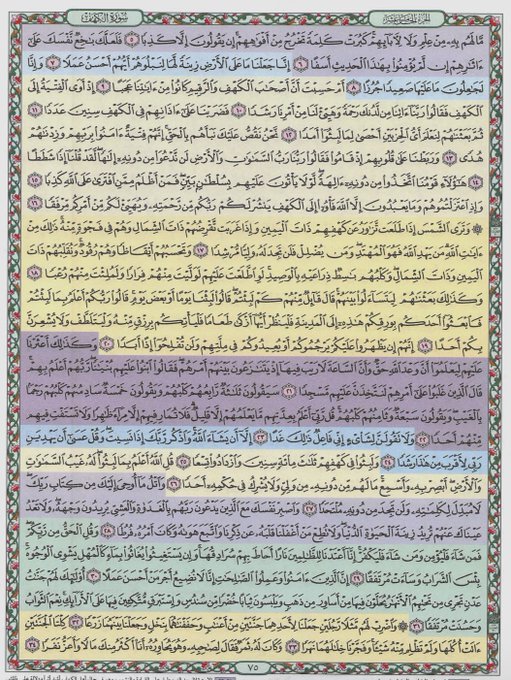 سُورَةُ الكَهْفِ الجُزْءُ الخَامِسَ عَشَرَ
مَّا لَهُم بِهِۦ مِنْ عِلْمٍ وَلَا لِءَابَآئِهِمْ كَبُرَتْ كَلِمَةً تَخْرُجُ مِنْ أَفْوَٰهِهِمْ إِن يَقُولُونَ إِلَّا كَذِبًا ٥ فَلَعَلَّكَ بَٰخِعٌ نَّفْسَكَ عَلَىٰٓ
ءَاثَٰرِهِمْ إِن لَّمْ يُؤْمِنُوا۟ بِهَٰذَا ٱلْحَدِيثِ أَسَفًا ٦ إِنَّا جَعَلْنَا مَا عَلَى ٱلْأَرْضِ زِينَةً لَّهَا لِنَبْلُوَهُمْ أَيُّهُمْ أَحْسَنُ عَمَلًا ٧ وَإِنَّا
لَجَٰعِلُونَ مَا عَلَيْهَا صَعِيدًا جُرُزًا ٨ أَمْ حَسِبْتَ أَنَّ أَصْحَٰبَ ٱلْكَهْفِ وَٱلرَّقِيمِ كَانُوا۟ مِنْ ءَايَٰتِنَا عَجَبًا ٩ إِذْ أَوَى ٱلْفِتْيَةُ إِلَى
ٱلْكَهْفِ فَقَالُوا۟ رَبَّنَآ ءَاتِنَا مِن لَّدُنكَ رَحْمَةً وَهَيِّئْ لَنَا مِنْ أَمْرِنَا رَشَدًا ١٠ فَضَرَبْنَا عَلَىٰٓ ءَاذَانِهِمْ فِى ٱلْكَهْفِ سِنِينَ عَدَدًا ١١
ثُمَّ بَعَثْنَٰهُمْ لِنَعْلَمَ أَىُّ ٱلْحِزْبَيْنِ أَحْصَىٰ لِمَا لَبِثُوٓا۟ أَمَدًا ١٢ نَّحْنُ نَقُصُّ عَلَيْكَ نَبَأَهُم بِٱلْحَقِّ إِنَّهُمْ فِتْيَةٌ ءَامَنُوا۟ بِرَبِّهِمْ وَزِدْنَٰهُمْ
هُدًى ١٣ وَرَبَطْنَا عَلَىٰ قُلُوبِهِمْ إِذْ قَامُوا۟ فَقَالُوا۟ رَبُّنَا رَبُّ ٱلسَّمَٰوَٰتِ وَٱلْأَرْضِ لَن نَّدْعُوَا۟ مِن دُونِهِۦٓ إِلَٰهًا لَّقَدْ قُلْنَآ إِذًا شَطَطًا
١٤ هَٰٓؤُلَآءِ قَوْمُنَا ٱتَّخَذُوا۟ مِن دُونِهِۦٓ ءَالِهَةً لَّوْلَا يَأْتُونَ عَلَيْهِم بِسُلْطَٰنٍۭ بَيِّنٍ فَمَنْ أَظْلَمُ مِمَّنِ ٱفْتَرَىٰ عَلَى ٱللَّهِ كَذِبًا ١٥
وَإِذِ ٱعْتَزَلْتُمُوهُمْ وَمَا يَعْبُدُونَ إِلَّا ٱللَّهَ فَأْوُۥٓا۟ إِلَى ٱلْكَهْفِ يَنشُرْ لَكُمْ رَبُّكُم مِّن رَّحْمَتِهِۦ وَيُهَيِّئْ لَكُم مِّنْ أَمْرِكُم مِّرْفَقًا ١٦
۞ وَتَرَى ٱلشَّمْسَ إِذَا طَلَعَت تَّزَٰوَرُ عَن كَهْفِهِمْ ذَاتَ ٱلْيَمِينِ وَإِذَا غَرَبَت تَّقْرِضُهُمْ ذَاتَ ٱلشِّمَالِ وَهُمْ فِى فَجْوَةٍ مِّنْهُ ذَٰلِكَ مِنْ
ءَايَٰتِ ٱللَّهِ مَن يَهْدِ ٱللَّهُ فَهُوَ ٱلْمُهْتَدِ وَمَن يُضْلِلْ فَلَن تَجِدَ لَهُۥ وَلِيًّا مُّرْشِدًا ١٧ وَتَحْسَبُهُمْ أَيْقَاظًا وَهُمْ رُقُودٌ وَنُقَلِّبُهُمْ ذَاتَ
ٱلْيَمِينِ وَذَاتَ ٱلشِّمَالِ وَكَلْبُهُم بَٰسِطٌ ذِرَاعَيْهِ بِٱلْوَصِيدِ لَوِ ٱطَّلَعْتَ عَلَيْهِمْ لَوَلَّيْتَ مِنْهُمْ فِرَارًا وَلَمُلِئْتَ مِنْهُمْ رُعْبًا ١٨
وَكَذَٰلِكَ بَعَثْنَٰهُمْ لِيَتَسَآءَلُوا۟ بَيْنَهُمْ قَالَ قَآئِلٌ مِّنْهُمْ كَمْ لَبِثْتُمْ قَالُوا۟ لَبِثْنَا يَوْمًا أَوْ بَعْضَ يَوْمٍ قَالُوا۟ رَبُّكُمْ أَعْلَمُ بِمَا لَبِثْتُمْ
فَٱبْعَثُوٓا۟ أَحَدَكُم بِوَرِقِكُمْ هَٰذِهِۦٓ إِلَى ٱلْمَدِينَةِ فَلْيَنظُرْ أَيُّهَآ أَزْكَىٰ طَعَامًا فَلْيَأْتِكُم بِرِزْقٍ مِّنْهُ وَلْيَتَلَطَّفْ وَلَا يُشْعِرَنَّ
بِكُمْ أَحَدًا ١٩ إِنَّهُمْ إِن يَظْهَرُوا۟ عَلَيْكُمْ يَرْجُمُوكُمْ أَوْ يُعِيدُوكُمْ فِى مِلَّتِهِمْ وَلَن تُفْلِحُوٓا۟ إِذًا أَبَدًا ٢٠ وَكَذَٰلِكَ أَعْثَرْنَا
عَلَيْهِمْ لِيَعْلَمُوٓا۟ أَنَّ وَعْدَ ٱللَّهِ حَقٌّ وَأَنَّ ٱلسَّاعَةَ لَا رَيْبَ فِيهَآ إِذْ يَتَنَٰزَعُونَ بَيْنَهُمْ أَمْرَهُمْ فَقَالُوا۟ ٱبْنُوا۟ عَلَيْهِم بُنْيَٰنًا رَّبُّهُمْ أَعْلَمُ بِهِمْ
قَالَ ٱلَّذِينَ غَلَبُوا۟ عَلَىٰٓ أَمْرِهِمْ لَنَتَّخِذَنَّ عَلَيْهِم مَّسْجِدًا ٢١ سَيَقُولُونَ ثَلَٰثَةٌ رَّابِعُهُمْ كَلْبُهُمْ وَيَقُولُونَ خَمْسَةٌ سَادِسُهُمْ كَلْبُهُمْ رَجْمًۢا
بِٱلْغَيْبِ وَيَقُولُونَ سَبْعَةٌ وَثَامِنُهُمْ كَلْبُهُمْ قُل رَّبِّىٓ أَعْلَمُ بِعِدَّتِهِم مَّا يَعْلَمُهُمْ إِلَّا قَلِيلٌ فَلَا تُمَارِ فِيهِمْ إِلَّا مِرَآءً ظَٰهِرًا وَلَا تَسْتَفْتِ فِيهِم
مِّنْهُمْ أَحَدًا ٢٢ وَلَا تَقُولَنَّ لِشَا۟ىْءٍ إِنِّى فَاعِلٌ ذَٰلِكَ غَدًا ٢٣ إِلَّآ أَن يَشَآءَ ٱللَّهُ وَٱذْكُر رَّبَّكَ إِذَا نَسِيتَ وَقُلْ عَسَىٰٓ أَن يَهْدِيَنِ
رَبِّى لِأَقْرَبَ مِنْ هَٰذَا رَشَدًا ٢٤ وَلَبِثُوا۟ فِى كَهْفِهِمْ ثَلَٰثَ مِا۟ئَةٍ سِنِينَ وَٱزْدَادُوا۟ تِسْعًا ٢٥ قُلِ ٱللَّهُ أَعْلَمُ بِمَا لَبِثُوا۟ لَهُۥ غَيْبُ ٱلسَّمَٰوَٰتِ
وَٱلْأَرْضِ أَبْصِرْ بِهِۦ وَأَسْمِعْ مَا لَهُم مِّن دُونِهِۦ مِن وَلِىٍّ وَلَا يُشْرِكُ فِى حُكْمِهِۦٓ أَحَدًا ٢٦ وَٱتْلُ مَآ أُوحِىَ إِلَيْكَ مِن كِتَابِ رَبِّكَ
لَا مُبَدِّلَ لِكَلِمَٰتِهِۦ وَلَن تَجِدَ مِن دُونِهِۦ مُلْتَحَدًا ٢٧ وَٱصْبِرْ نَفْسَكَ مَعَ ٱلَّذِينَ يَدْعُونَ رَبَّهُم بِٱلْغَدَوٰةِ وَٱلْعَشِىِّ يُرِيدُونَ وَجْهَهُۥ وَلَا تَعْدُ
عَيْنَاكَ عَنْهُمْ تُرِيدُ زِينَةَ ٱلْحَيَوٰةِ ٱلدُّنْيَا وَلَا تُطِعْ مَنْ أَغْفَلْنَا قَلْبَهُۥ عَن ذِكْرِنَا وَٱتَّبَعَ هَوَىٰهُ وَكَانَ أَمْرُهُۥ فُرُطًا ٢٨ وَقُلِ ٱلْحَقُّ مِن رَّبِّكُمْ
فَمَن شَآءَ فَلْيُؤْمِن وَمَن شَآءَ فَلْيَكْفُرْ إِنَّآ أَعْتَدْنَا لِلظَّٰلِمِينَ نَارًا أَحَاطَ بِهِمْ سُرَادِقُهَا وَإِن يَسْتَغِيثُوا۟ يُغَاثُوا۟ بِمَآءٍ كَٱلْمُهْلِ يَشْوِى ٱلْوُجُوهَ
بِئْسَ ٱلشَّرَابُ وَسَآءَتْ مُرْتَفَقًا ٢٩ إِنَّ ٱلَّذِينَ ءَامَنُوا۟ وَعَمِلُوا۟ ٱلصَّٰلِحَٰتِ إِنَّا لَا نُضِيعُ أَجْرَ مَنْ أَحْسَنَ عَمَلًا ٣٠ أُو۟لَٰٓئِكَ لَهُمْ جَنَّٰتُ
عَدْنٍ تَجْرِى مِن تَحْتِهِمُ ٱلْأَنْهَٰرُ يُحَلَّوْنَ فِيهَا مِنْ أَسَاوِرَ مِن ذَهَبٍ وَيَلْبَسُونَ ثِيَابًا خُضْرًا مِّن سُندُسٍ وَإِسْتَبْرَقٍ مُّتَّكِـِٔينَ فِيهَا عَلَى ٱلْأَرَآئِكِ نِعْمَ ٱلثَّوَابُ
وَحَسُنَتْ مُرْتَفَقًا ٣١ ۞ وَٱضْرِبْ لَهُم مَّثَلًا رَّجُلَيْنِ جَعَلْنَا لِأَحَدِهِمَا جَنَّتَيْنِ مِنْ أَعْنَٰبٍ وَحَفَفْنَٰهُمَا بِنَخْلٍ وَجَعَلْنَا بَيْنَهُمَا زَرْعًا ٣٢ كِلْتَا ٱلْجَنَّتَيْنِ
ءَاتَتْ أُكُلَهَا وَلَمْ تَظْلِم مِّنْهُ شَيْـًٔا وَفَجَّرْنَا خِلَٰلَهُمَا نَهَرًا ٣٣ وَكَانَ لَهُۥ ثَمَرٌ فَقَالَ لِصَٰحِبِهِۦ وَهُوَ يُحَاوِرُهُۥٓ أَنَا۠ أَكْثَرُ مِنكَ مَالًا وَأَعَزُّ نَفَرًا ٣٤
٧٥